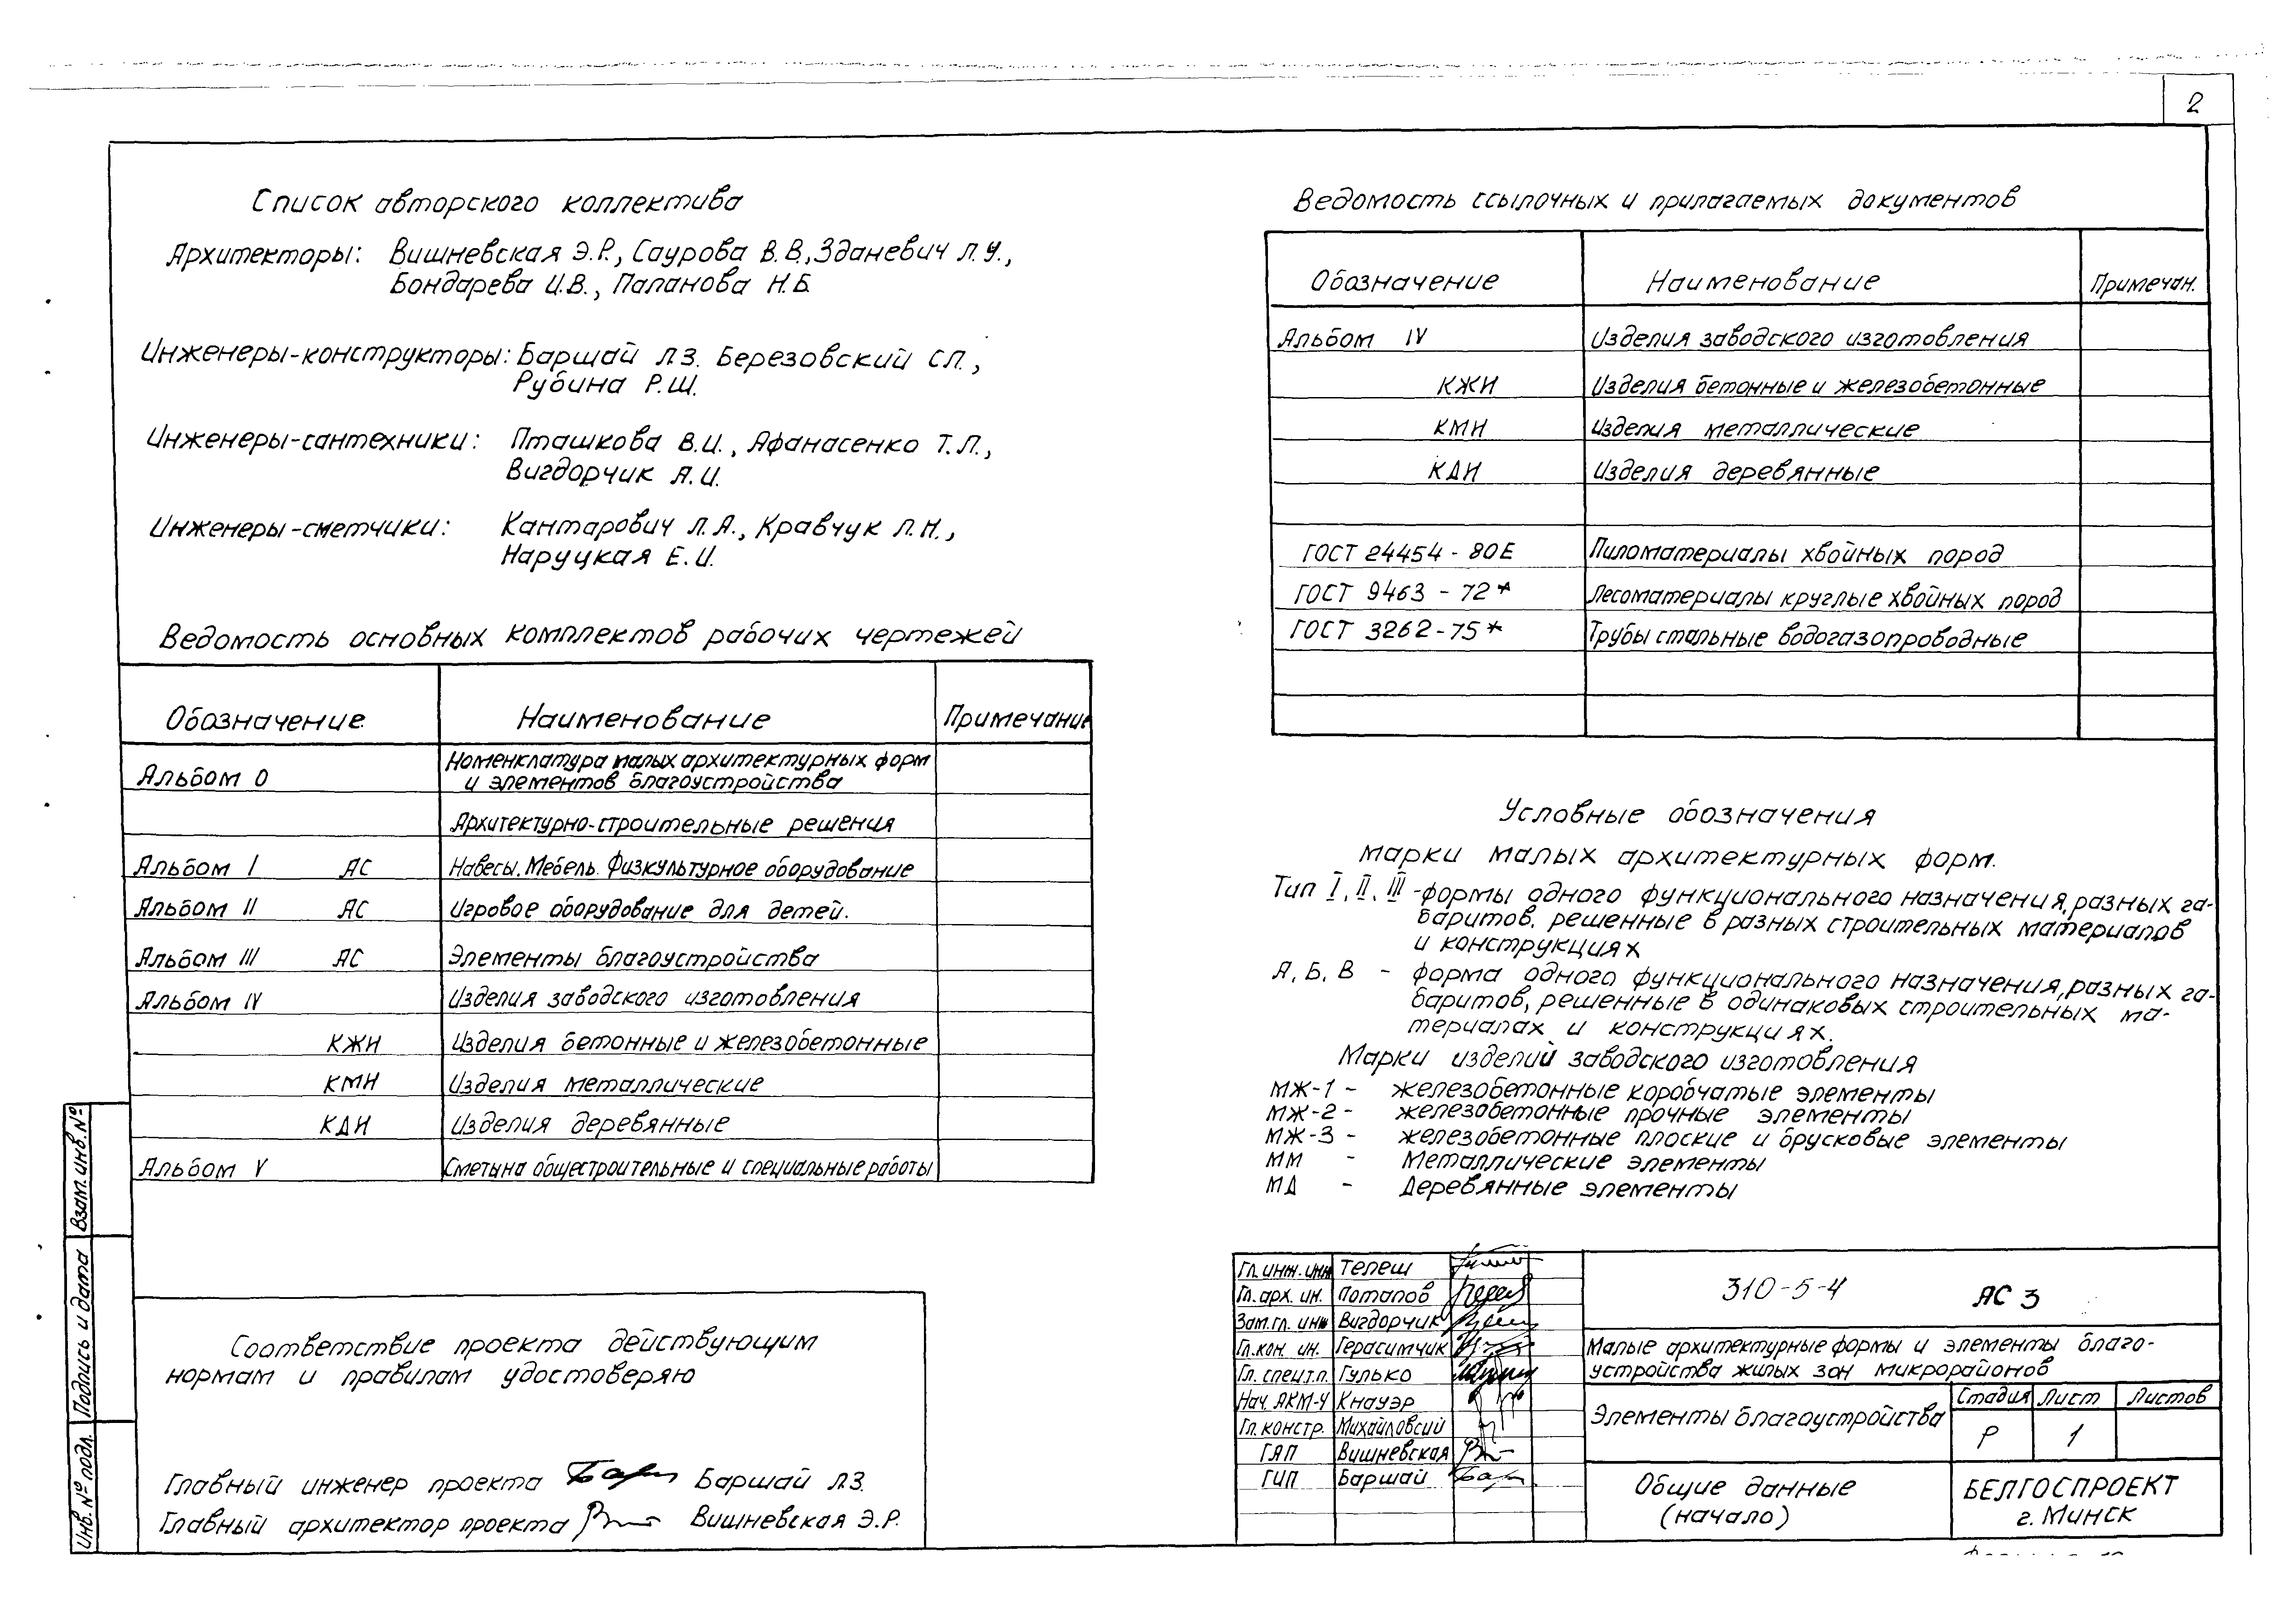 2
Список авторского коллектива
Архитекторы: Вишневская Э.Р., Саурова В.В., Зданевич Л.У.,
Бондарева И.В., Папанова Н.Б.
Инженеры-конструкторы: Баршай Л.З. Березовский С.Л.,
Рубина Р.Ш.
Инженеры-сантехники: Пташкова В.И., Афанасенко Т.Л.,
Вигдорчик А.И.
Инженеры-сметчики: Кантарович Л.А., Кравчук Л.Н.,
Наруцкая Е.И.
Ведомость основных комплектов рабочих чертежей
Обозначение Наименование Примечание
Альбом 0 Номенклатура малых архитектурных форм
и элементов благоустройства
Архитектурно-строительные решения
Альбом I АС Навесы. Мебель. Физкультурное оборудование
Альбом II АС Игровое оборудование для детей.
Альбом III АС Элементы благоустройства
Альбом IV Изделия заводского изготовления
КЖИ Изделия бетонные и железобетонные
КМИ Изделия металлические
КДИ Изделия деревянные
Альбом V Сметы на общестроительные и специальные работы
Соответствие проекта действующим
нормам и правилам удостоверяю
Главный инженер проекта Баршай Л.З.
Главный архитектор проекта Вишневская Э.Р.
Взам. инв. №
Подпись и дата
Инв. № подл.
Ведомость ссылочных и прилагаемых документов
Обозначение Наименование Примечан.
Альбом IV Изделия заводского изготовления
КЖИ Изделия бетонные и железобетонные
КМИ Изделия металлические
КДИ Изделия деревянные
ГОСТ 24454-80Е Пиломатериалы хвойных пород
ГОСТ 9463-72* Лесоматериалы круглые хвойных пород
ГОСТ 3262-75* Трубы стальные водогазопроводные
Условные обозначения
марки малых архитектурных форм.
Тип I, II, III - формы одного функционального назначения, разных га-
баритов, решенные в разных строительных материалов
и конструкциях
А, Б, В - форма одного функционального назначения, разных га-
баритов, решенные в одинаковых строительных ма-
териалах и конструкциях.
Марки изделий заводского изготовления
МЖ-1 - железобетонные коробчатые элементы
МЖ-2 - железобетонные прочные элементы
МЖ-3 - железобетонные плоские и брусковые элементы
ММ - Металлические элементы
МД - Деревянные элементы
Гл. инж. инж Телеш
Гл. арх. ин. Потапов
Зам. гл. инж Вигдорчик
Гл. кон. ин. Герасимчик
Гл. спец.т.п. Гулько
Нач. АКМ-У Кнауэр
Гл. констр. Михайловсий
ГАП Вишневская
ГИП Баршай
310-5-4 АС 3
Малые архитектурные формы и элементы благо-
устройства жилых зон микрорайонов
Элементы благоустройства
Стадия Лист Листов
Р 1
Общие данные
(начало)
БЕЛГОСПРОЕКТ
г. Минск